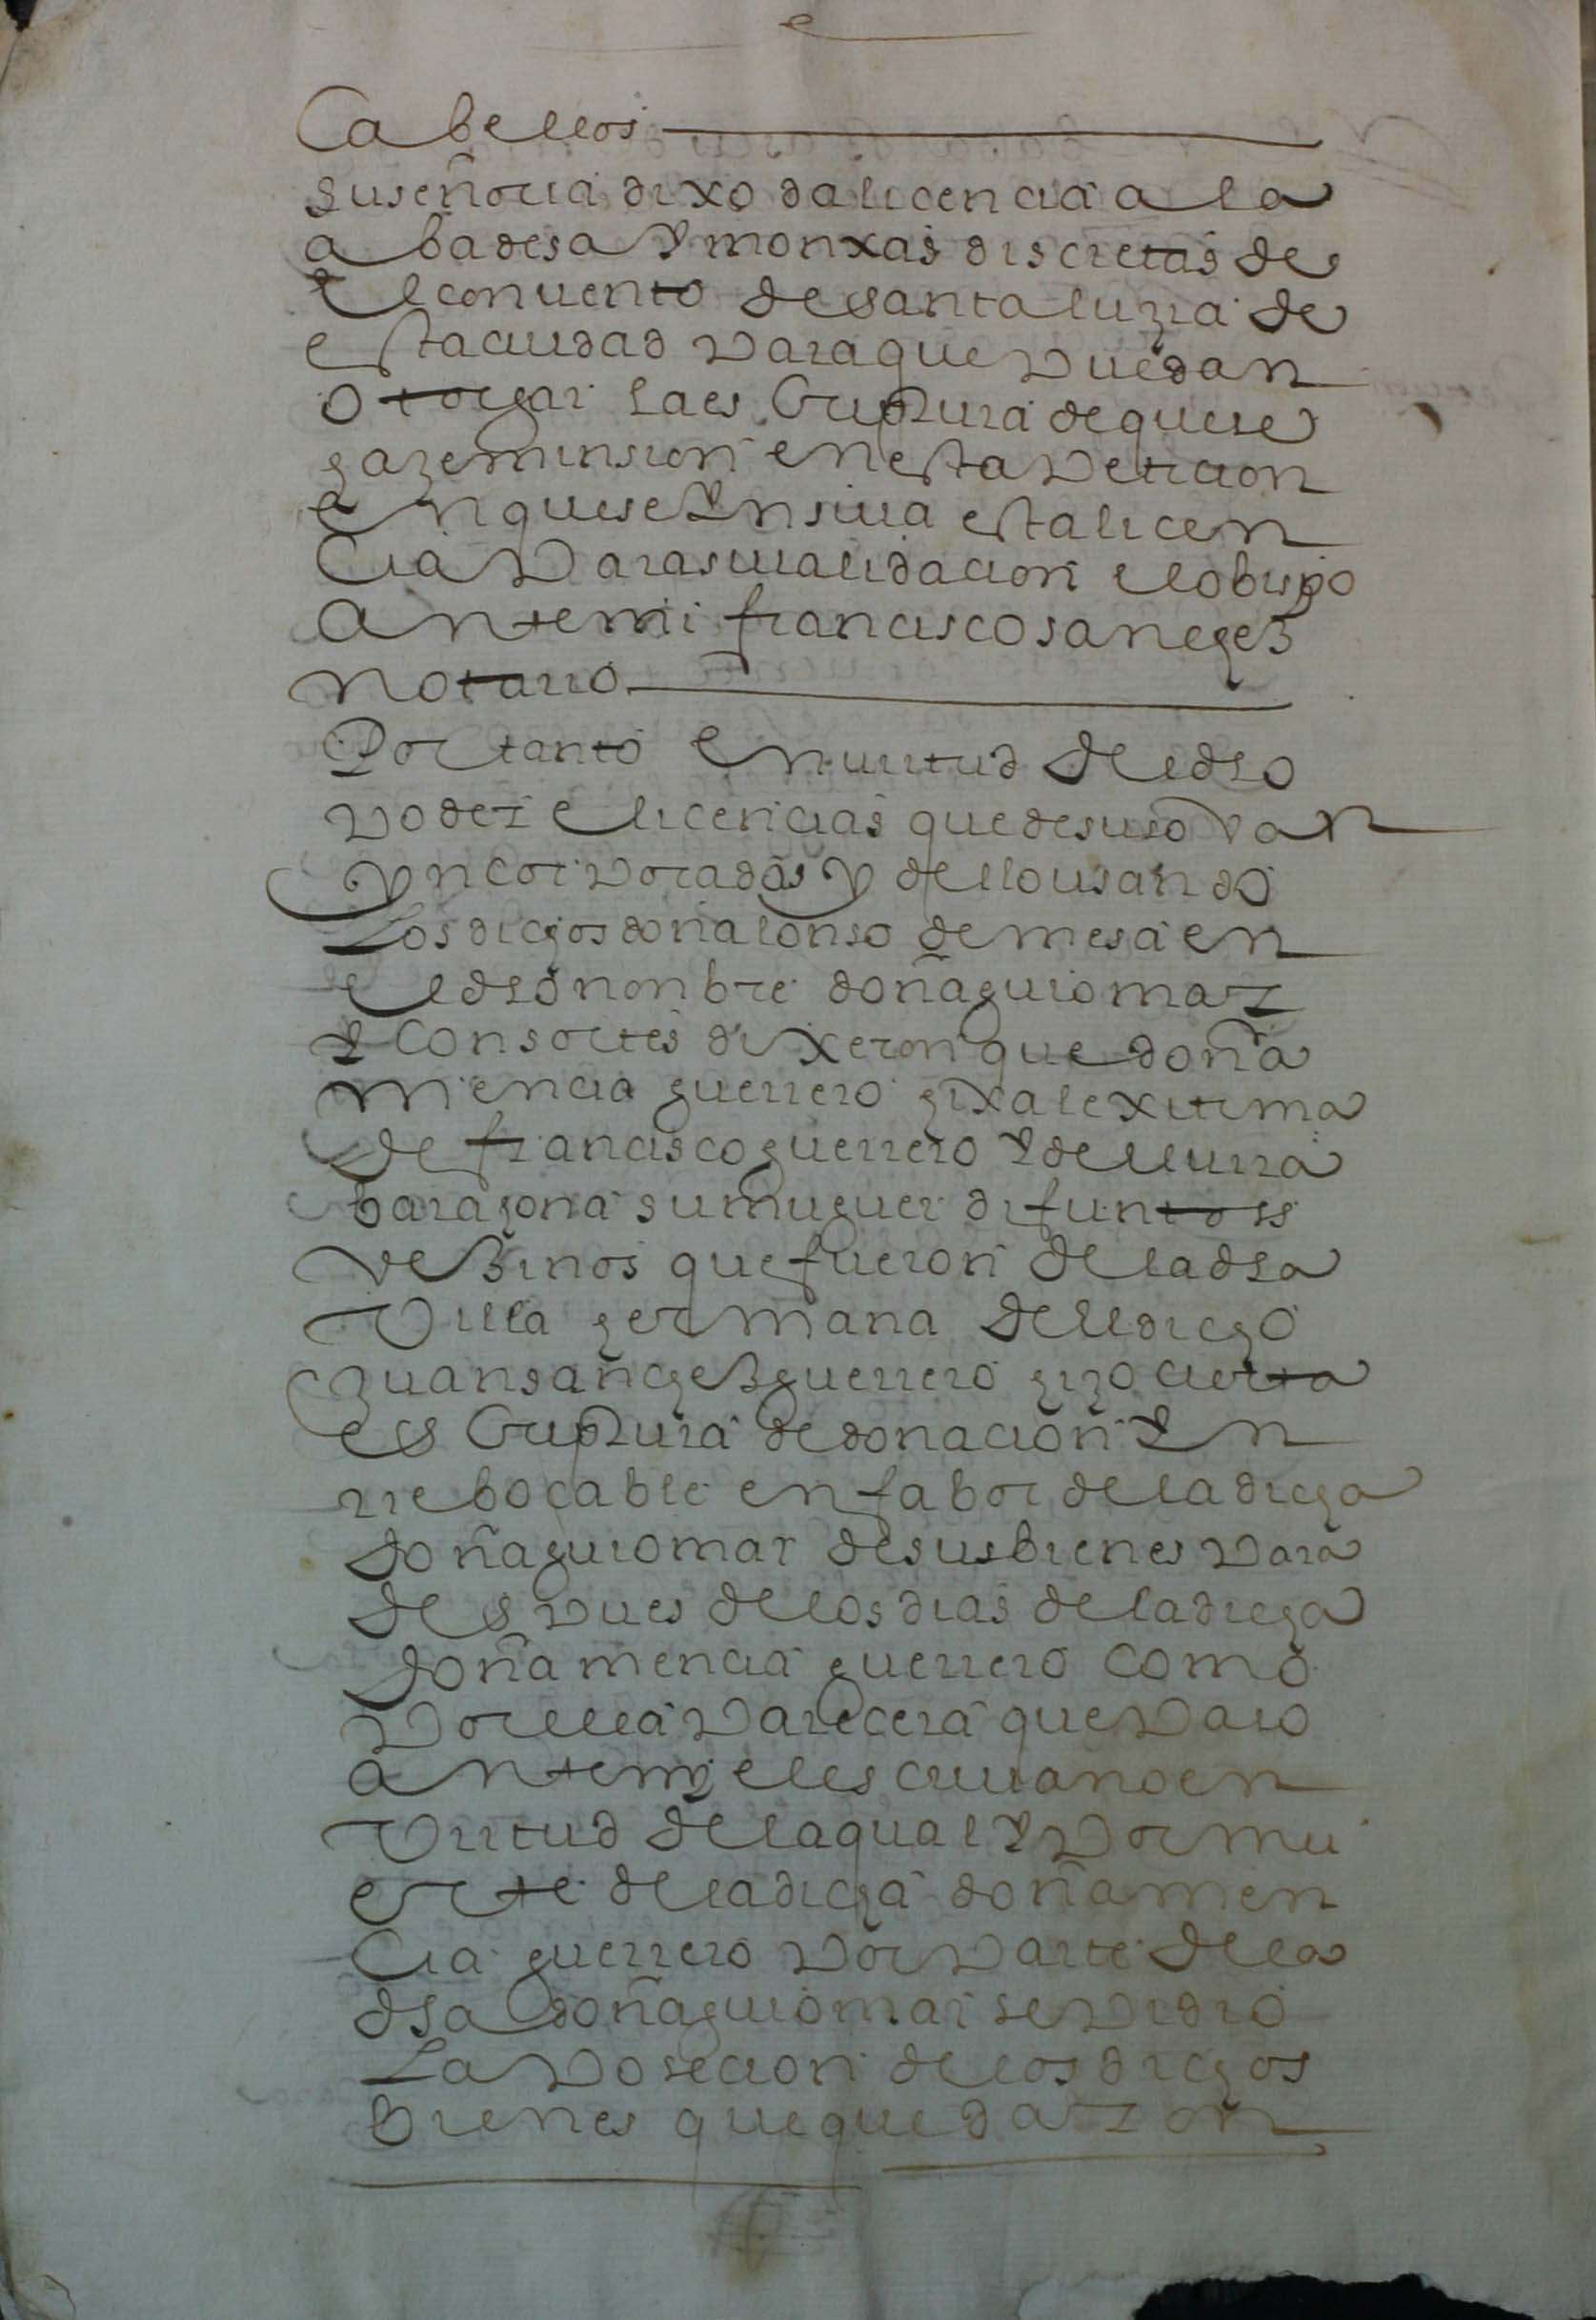 Cabellos
su señoria dixo da licencia a la
abadesa y monxas discretas de
el conuento de santa luzia de
esta ciudad para que puedan
otorgar la escriptura de que se
haze minsion en esta peticion
en que se ynsiua esta licen
cia para su ualidacion el obispo
ante mi francisco sanchez
notario
Por tanto en uirtud del dho
poder e licencias que de suso van
yncorporadas y dello usando
los dichos don alonso de mesa en
el dho nonbre doña guiomar
y consortes dixeron que doña
mencia guerrero hixa lexitima
de francisco guerrero y de eluira
barahona su muguer difuntos
vezinos que fueron de la dha
villa hermana del dicho
juan sanchez guerrero hizo cierta
escriptura de donacion yn
rrebocable en fabor de la dicha
doña guiomar de sus bienes para
despues de los dias de la dicha
doña mencia guerrero como
por ella parecera que paso
ante my el escriuano en
virtud de la qual y por mu
erte de la dicha doña men
cia guerrero por parte de la
dha doña guiomar se pidio
la posecion de los dichos
bienes que quedaron